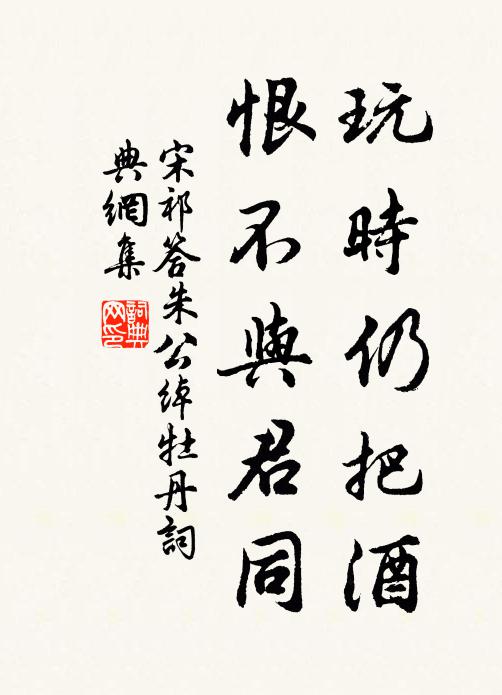 玩時仍把酒
恨不與君同
宋祁答朱公綽牡丹詞
典網集
詞典網印